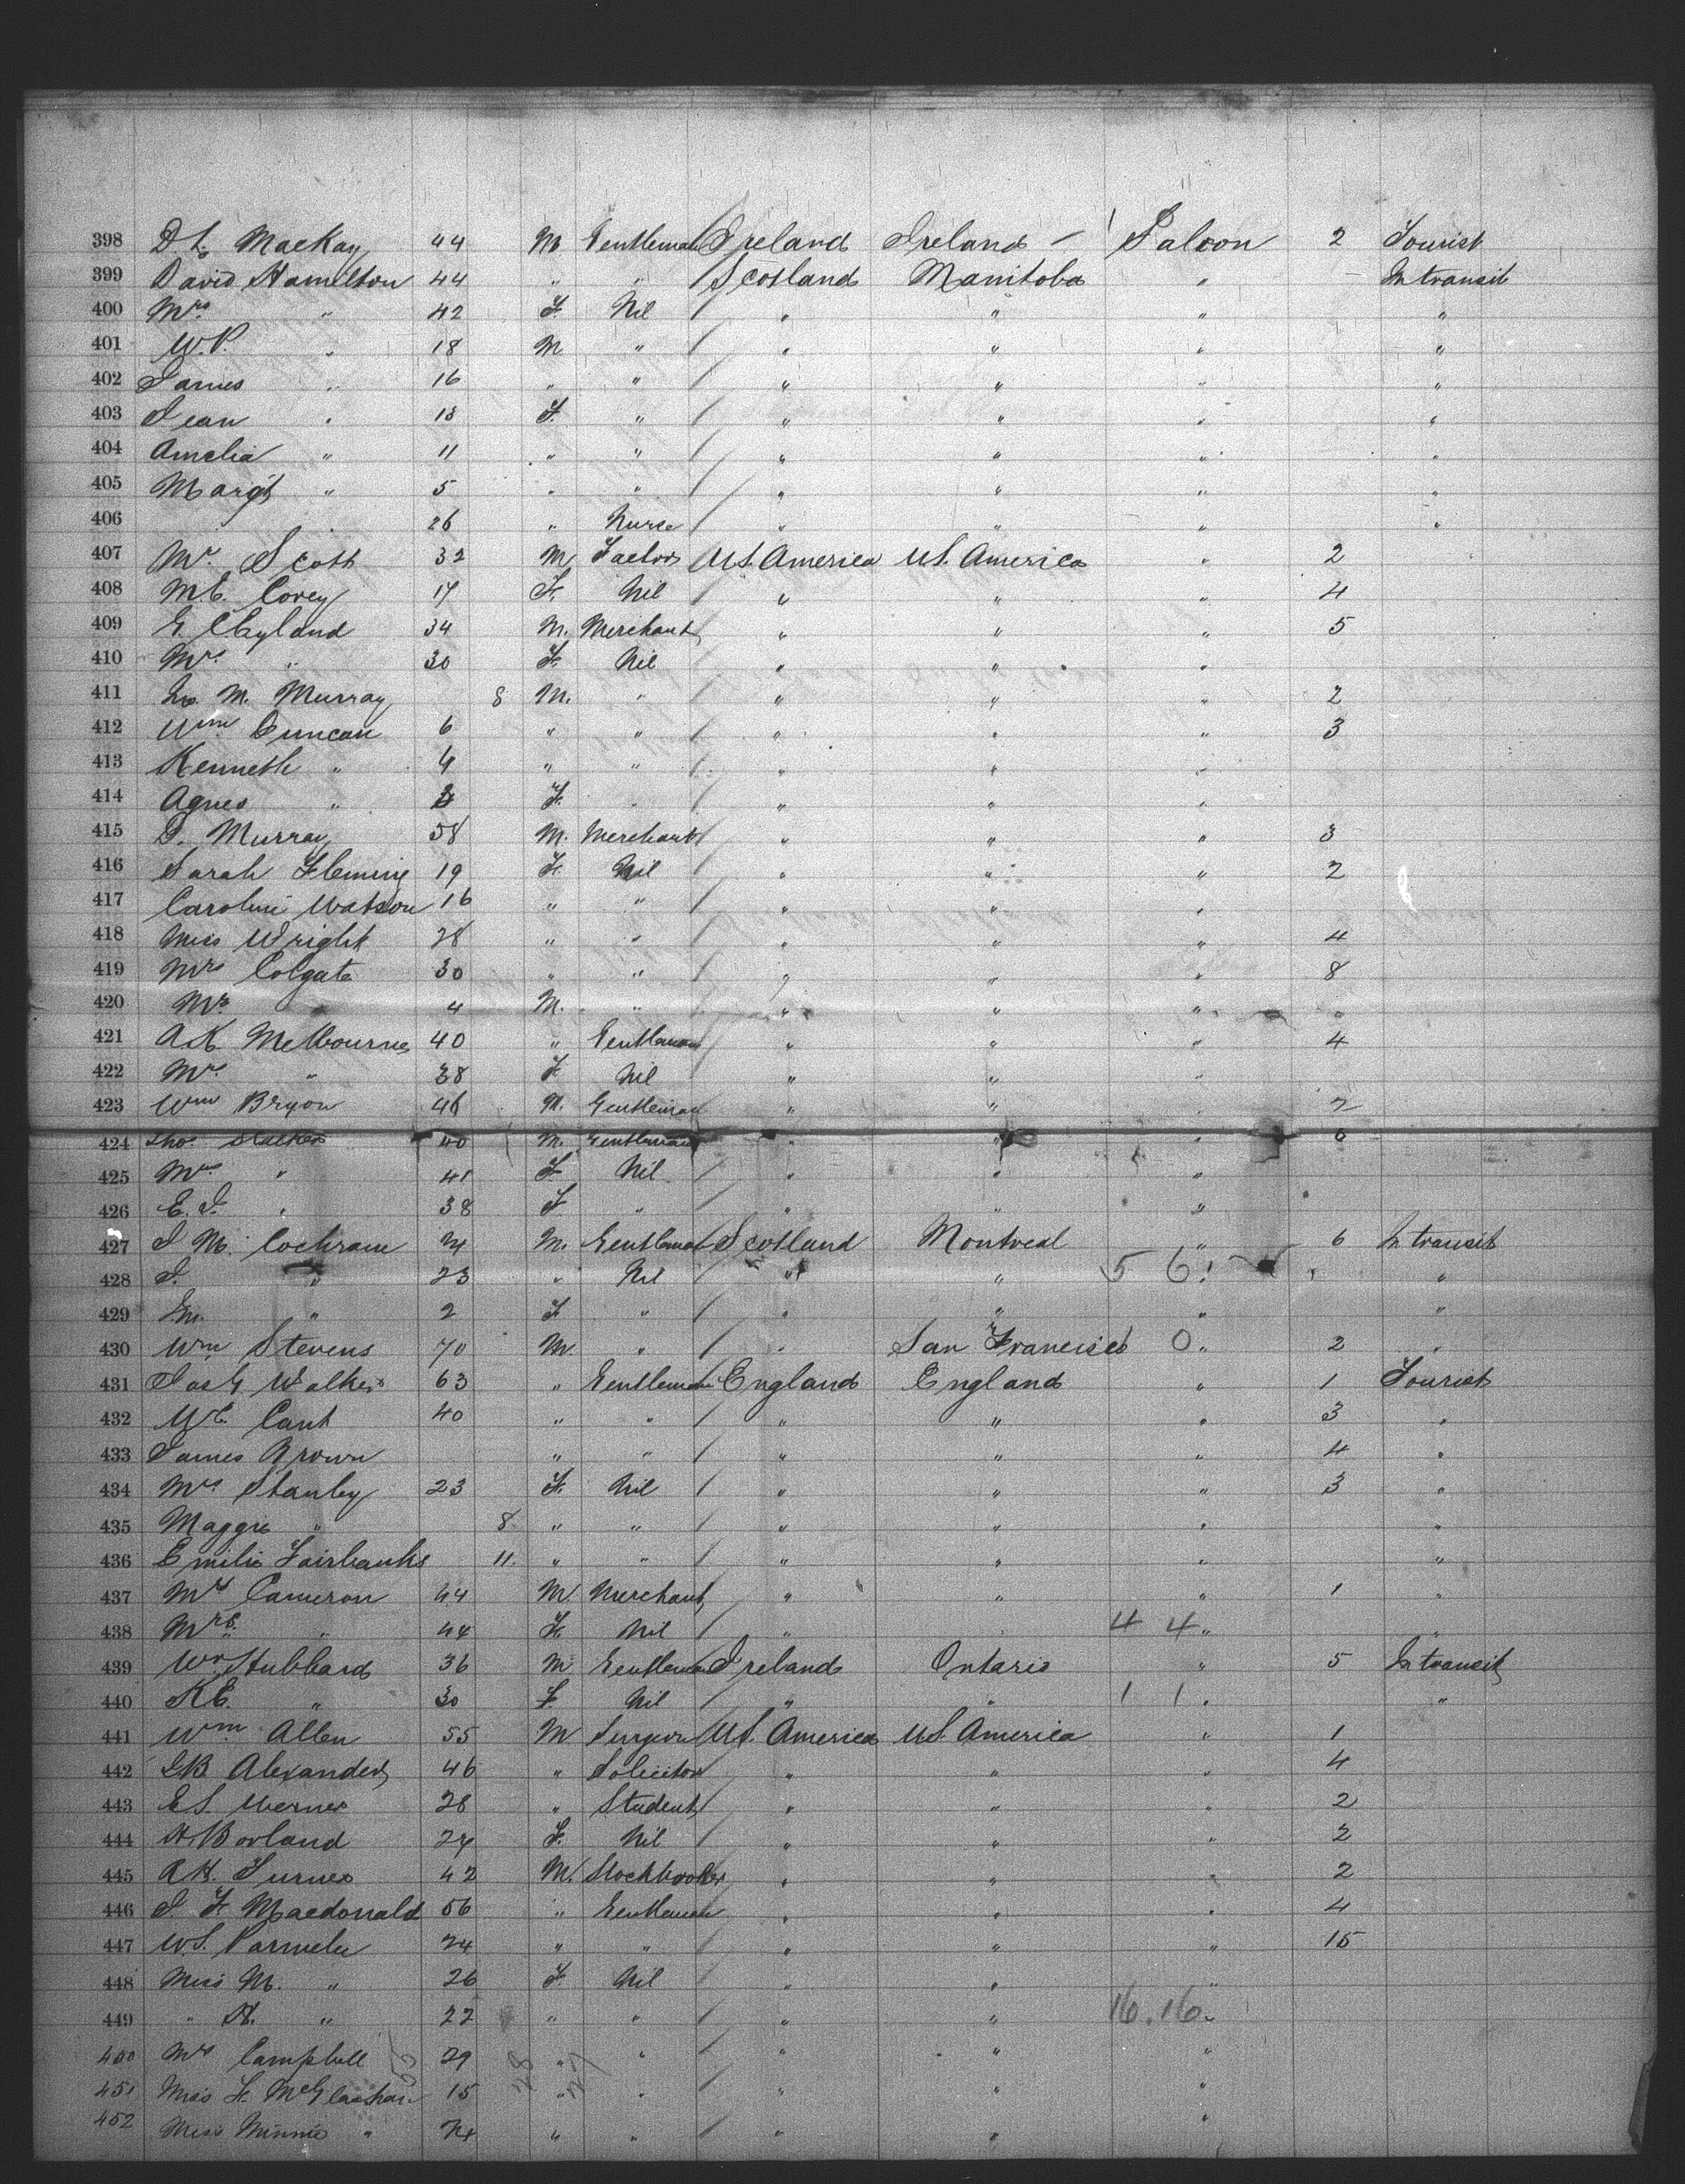 398 D L MacKay 44 M Gentleman Ireland Ireland – Saloon 2 Tourist
399 David Hamilton 44 " " Scotland Manitoba " – In transit
400 Mrs " 42 F. Nil " " " "
401 W.P. " 18 M " " " " "
402 James " 16 " " " " " "
403 Jean " 13 F. " " " " "
404 Amelia " 11 " " " " " "
405 Margt " 5 " " " " " "
406 26 " Nurse " " " "
407 Mr Scott 32 M Factor U.S. America U.S. America " 2
408 M.E. Corey 17 F. Nil " " " 4
409 34 M. Merchant " " " 5
410 Mrs " 30 F. Nil " " "
411 M. Murray 8 M. " " " " 2
412 Wm Duncan 6 " " " " " 3
413 Kenneth " 4 " " " " "
414 Agnes " F. " " " "
415 D. Murray 58 M. Merchant " " " 3
416 Sarah Fleming 19 F. Nil " " " 2
417 Caroline Watson 16 " " " " "
418 Miss Wright 28 " " " " " 4
419 Mrs Colgate 30 " " " " " 8
420 Mr " 4 M. " " " " "
421 Melbourne 40 " Gentleman " " " 4
422 Mrs " 38 F Nil " " "
423 Wm Bryon 46 M. Gentleman " " " 2
424 Thos 40 M. Gentleman " " " 6
425 Mrs " 41 F Nil " " "
426 E. J. " 38 F " " " "
427 J M. Cochrane M. Gentleman Scotland Montreal " 6 In transit
428 J. " 23 " Nil " " 5 6 " " "
429 " 2 F. " " " " "
430 Wm Stevens 70 M. " " San Francisco 0 " 2 "
431 Jas G Walker 63 " Gentleman England England " 1 Tourist
432 Cant 40 " " " " " 3 "
433 James Brown " " " " " 4 "
434 Mrs Stanley 23 F. Nil " " " 3 "
435 Maggie " 8 " " " " " "
436 Emilie Fairbanks 11. " " " " " "
437 Mr Cameron 44 M. Merchant " " " 1 "
438 Mrs " 44 F. Nil " 4 4 "
439 Wm Hubbard 36 M Gentleman Ireland Ontario " 5 In transit
440 K.E. " 30 F. Nil " " 1 1 " "
441 Wm Allen 55 M Surgeon U.S. America U.S. America " 1
442 Alexander 46 " Solicitor " " " 4
443 E S. Werner 28 " Student " " " 2
444 H. Borland 24 F. Nil " " " 2
445 A H. Turner 42 M. Stockbroker " " " 2
446 J. F. Macdonald 56 " Gentleman " " " 4
447 W.S. Parmelee 24 " " " " " 15
448 Miss M. " 26 F. Nil " " "
449 " H. " 22 " " " " 16. 16 "
450 Mrs Campbell 29 " " " " "
451 Miss F. McGlashan 15 " " " " "
452 Miss Minnie " 24 " " " " "